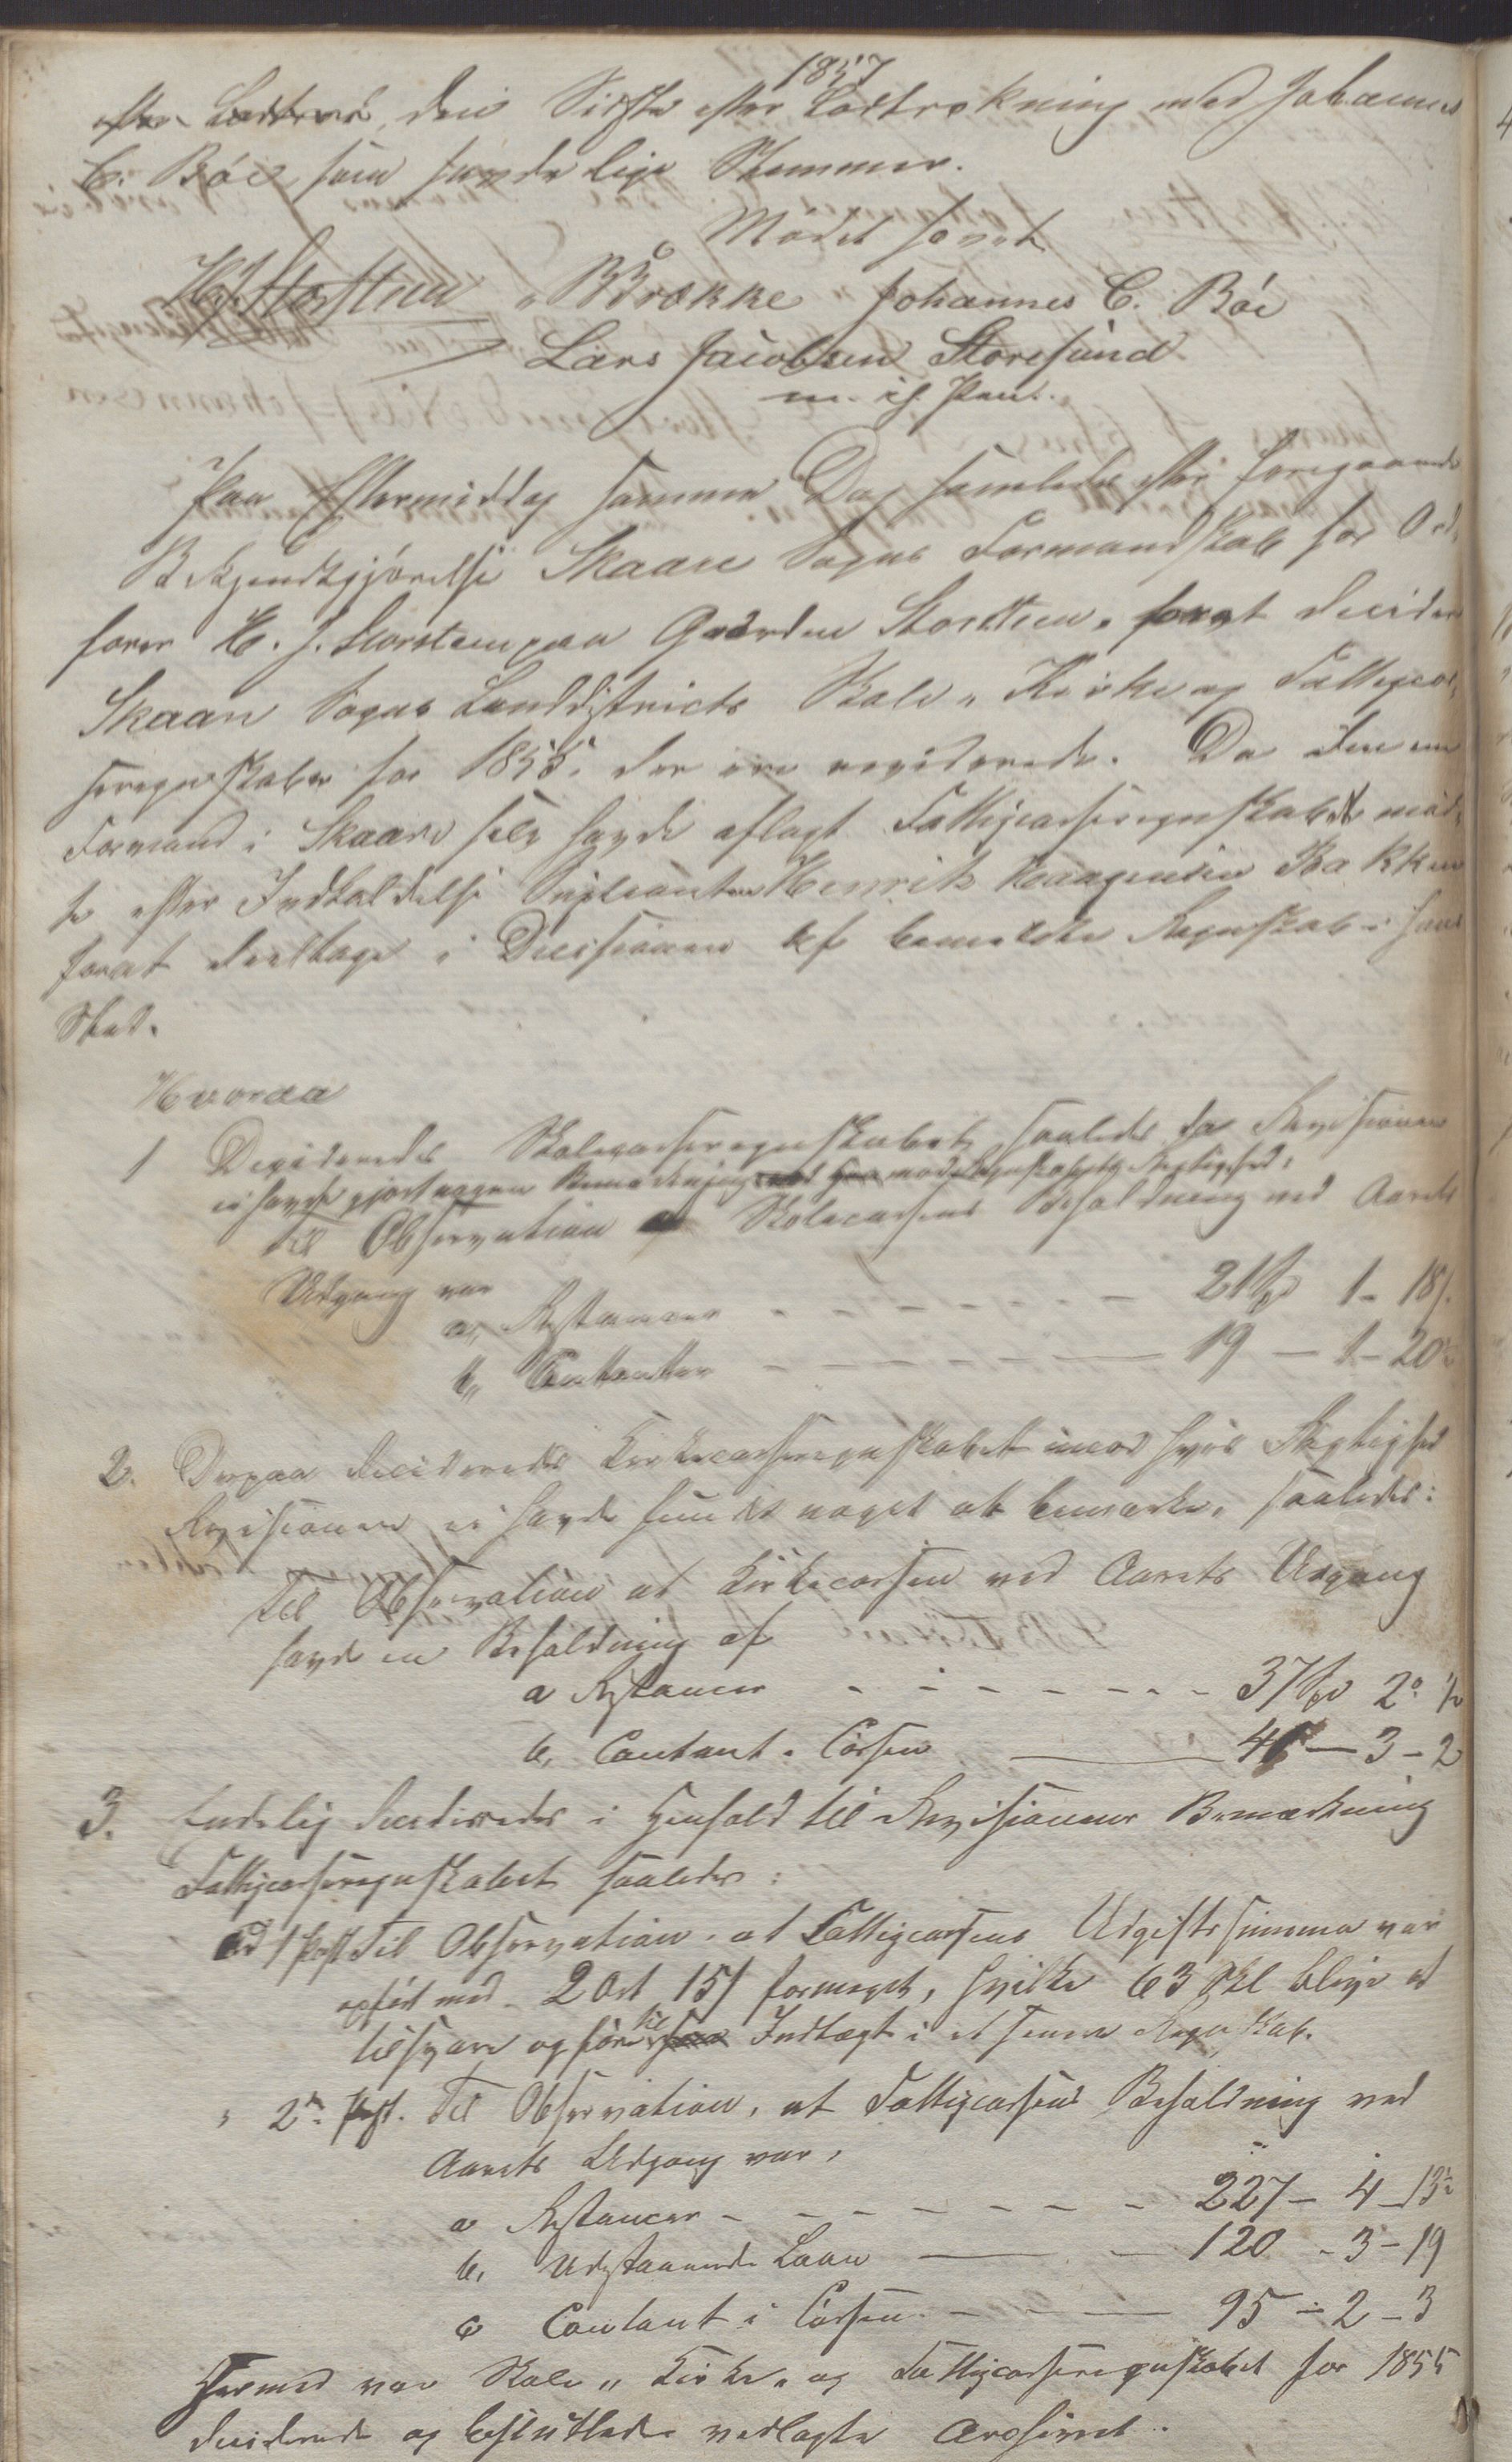 1857
efter Lodtræk, den Sidste efter Lodtrækning med Johannes
C. Böe som havde lige Stemmer.
Mödet hævet
H. J. Storsteen " B Brække Johannes C. Böe
Lars Jacobsen Storesund
m. if. Pen.
Paa Eftermiddag samme Dag samledes efter foregaaende
Bekjendtgjörelse Skaare Sogns Formandskab hos Ord-
förer H. J. Storsteen paa Gaarden Storsteen, forat decidere
Skaare Sogns Landdistricts Skole " Kirke og Fattigcas-
seregnskaber for 1855, der ere reviderede. Da den ene
Formand i Skaare selv havde aflagt Fattigcasseregnskabet möd-
te efter Indkaldelse Suppleanten Henrik Haagensen Bakken
forat deeltage i Decisionen af bemeldte Regnskab i hans
Sted.
Hvorda
1 Decideredes Skolecasseregnskabet saaledes da Revisionen
ei havde gjort nogen Bemærkning mod Regnskabets Rigtighed:
Til Observation Skolecassens Beholdning ved Aarets
Udgang var
a, Restancer - - - - - - - 21 Spd 1 - 18 s.
b, Contanter - - - - 19 - 1 - 20
2. Derpaa decideredes Kirkecasseregnskabet imod hvis Rigtighed
Revisionen ei havde fundet noget at bemærke, saaledes:
Til Observation at Kirkecassen ved Aarets Udgang
havde en Beholdning af
a Restancer - - - - - - - 37 Spd 2
b, Contant i Cassen - 46 - 3 - 2
3. Endelig decideredes i Henhold til Revisionens Bemærkning
Fattigcasseregnskabet saaledes:
Ad 1 Post Til Observation, at Fattigcassens Udgiftssumma var
opfört med 2 Ort 15 s formeget, hvilke 63 Skl bliver at
tilsvare og före til Indtægt i et senere Regnskab.
" 2n Post. Til Observation, at Fattigcassens Beholdning ved
Aarets Udgang var,
a Restancer - - - - - - 227 - 4 - 13
b, Udestaaende Laan - - 120 - 3 - 19
c Contant i Cassen - - - 95 - 2 - 3
Hermed var Skole " Kirke " og Fattigcasseregnskabet for 1855
deciderede og besluttedes vedlagte Archivet.